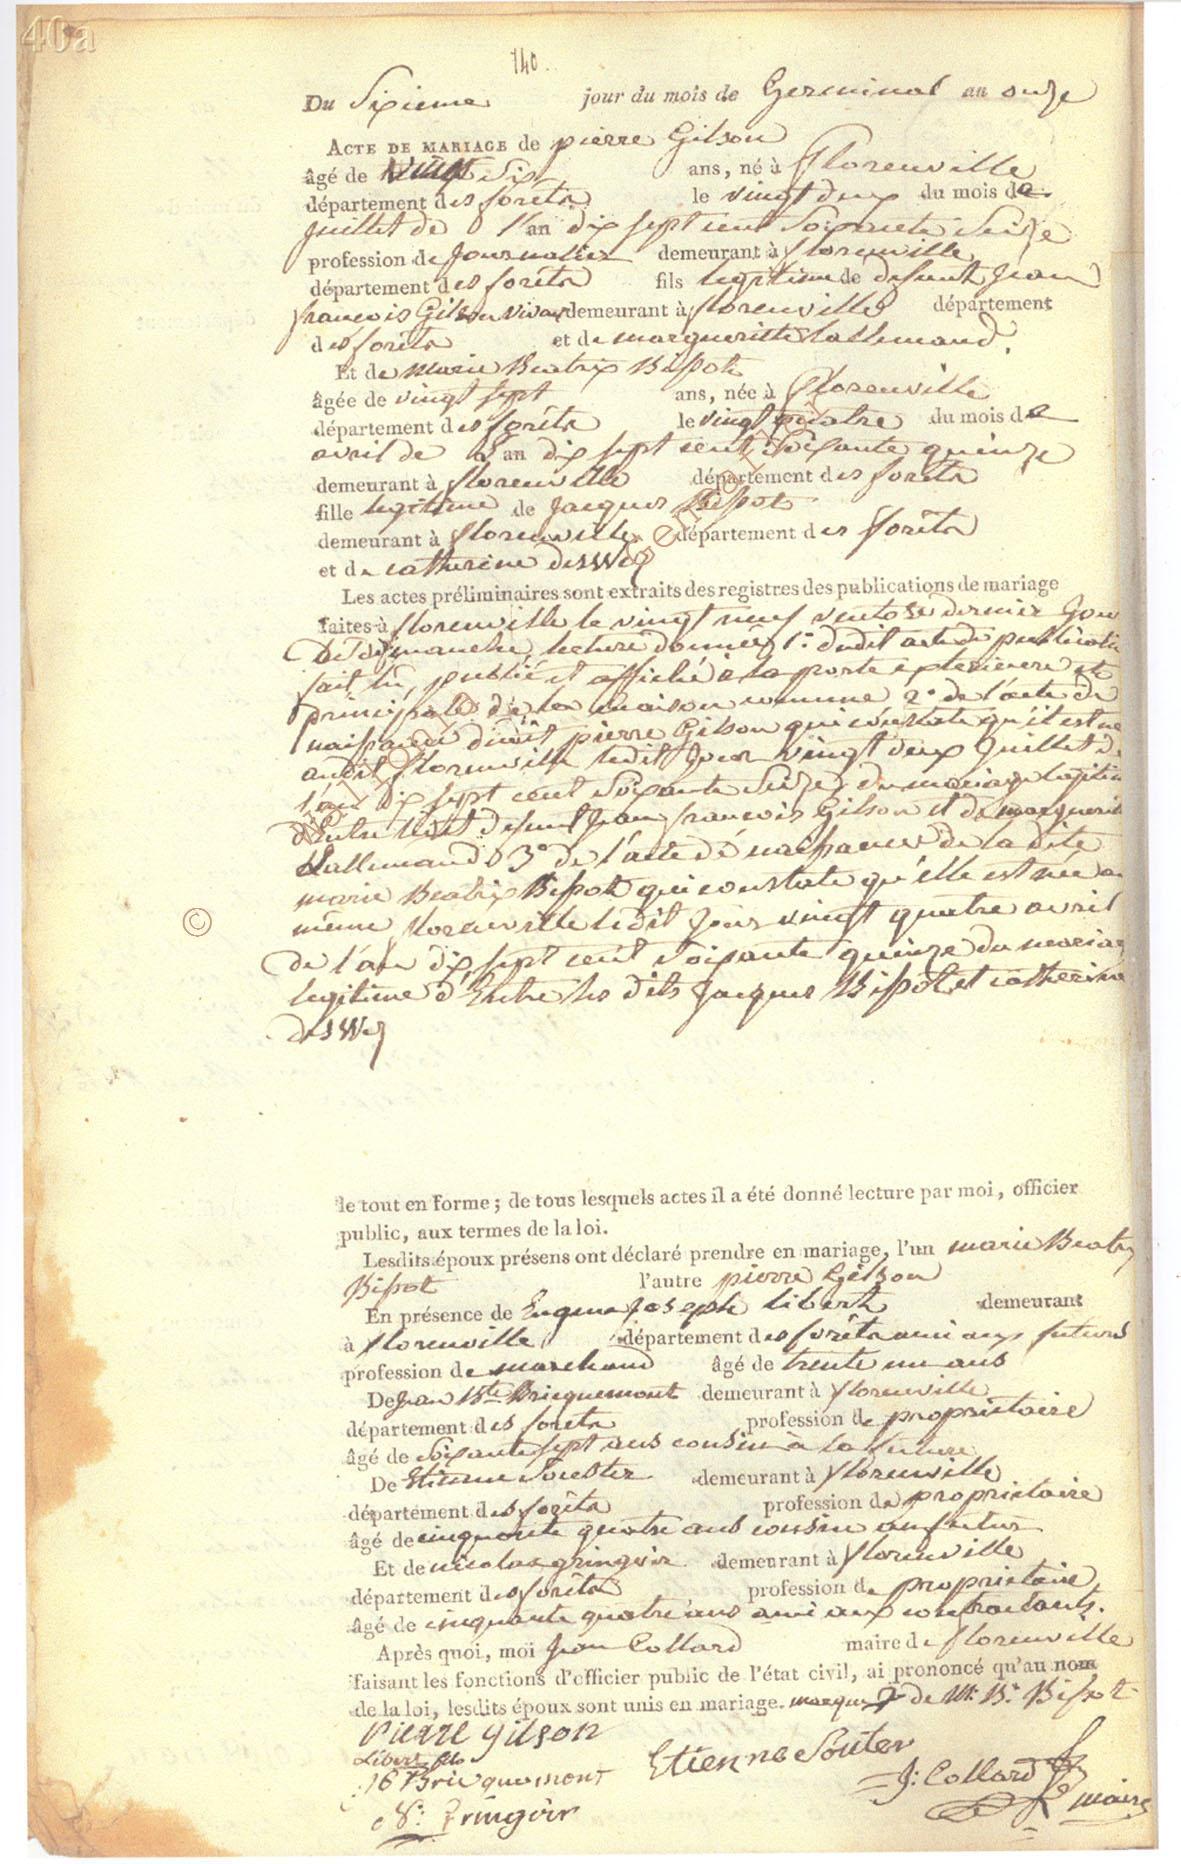 40a
140
Du Sixieme jour du mois de Germinal an onze
ACTE DE MARIAGE de pierre Gilson
âgé de vingt Six ans, né à florenville
département des forêts le vingt deux du mois de
Juillet de l'an dix sept cent Soixante Seize
profession de Journalier demeurant à florenville
département des forêts fils legitime de defunt Jean
francois Gilson vivant demeurant à florenville département
des forêts et de margueritte Lallemand.
Et de Marie Beatrix Bissot
âgée de vingt sept ans, née à florenville
département des forêts le vingt quatre du mois de
avril de l'an dix sept cent Soixante quinze
demeurant à florenville département des forêts
fille legitime de Jacques Bissot
demeurant à florenville département des forêts
et de catherine
Les actes préliminaires sont extraits des registres des publications de mariage
faites à florenville le vingt neuf ventose dernier Jour
De dimanche, lecture donnée 1º dudit acte de publication
fait, lû, publié et affiché à la porte exterieure et
principale de la maison commune 2º de l'acte de
naissance dudit pierre Gilson qui constate qu'il est né
audit florenville ledit Jour vingt deux Juillet de
l'an dix sept cent Soixante Seize du mariage legitime
d'Entre ledit defunt Jean francois Gilson et de marguerite
Lallemand 3º de l'acte de naissance de la dite
marie Beatrix Bissot qui constate qu'elle est née au
même florenville ledit Jour vingt quatre avril
de l'an dix sept cent Soixante quinze du mariage
legitime d'Entre les dits Jacques Bissot et catherine
©
le tout en forme ; de tous lesquels actes il a été donné lecture par moi, officier
public, aux termes de la loi.
Lesdits époux présens ont déclaré prendre en mariage, l'un marie Beatrix
Bissot l'autre pierre Gilson
En présence de Eugene Joseph Libert demeurant
à florenville département des forêts ami aux futurs
profession de marchand âgé de trente un ans
De Jean Bte Bricquemont demeurant à florenville
département des forets profession de proprietaire
âgé de Soixante sept ans cousin à la future
De Etienne demeurant à florenville
département des forêts profession de proprietaire
âgé de cinquante quatre ans cousin au futur
Et de nicolas gringoir demeurant à florenville
département des forêts profession de proprietaire
âgé de cinquante quatre ans ami aux contractants.
Après quoi, moi Jean Collard maire de florenville
faisant les fonctions d'officier public de l'état civil, ai prononcé qu'au nom
de la loi, lesdits époux sont unis en mariage. marque de M. B. Bissot
Pierre gilson
Libert
Bricquemont
Etienne Souter
J: Collard
maire